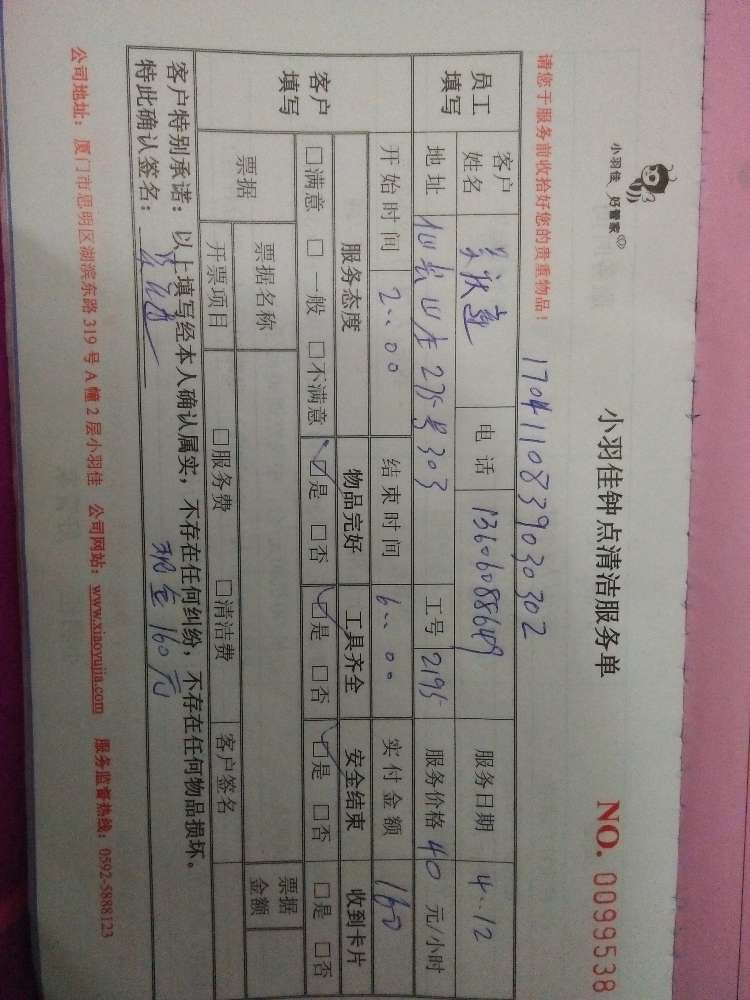 小羽佳 好管家
小羽佳钟点清洁服务单
NO. 0099538
请您于服务前收拾好您的贵重物品!
17041108390302
员工填写 客户姓名 电话 13606088649 服务日期 4..12
地址 275号303 工号 2195 服务价格 40 元/小时
开始时间 2..00 结束时间 6..00 实付金额 160
客户填写 服务态度 物品完好 工具齐全 安全结束 收到卡片
□满意 □一般 □不满意 ☑是 □否 ☑是 □否 ☑是 □否 □是 □否
票据 票据名称 票据金额
开票项目 □服务费 □清洁费 客户签名
客户特别承诺:以上填写经本人确认属实,不存在任何纠纷,不存在任何物品损坏。
特此确认签名: 现金160元
公司地址:厦门市思明区湖滨东路319号A幢2层小羽佳 公司网站:www.xiaoyujia.com 服务监督热线:0592-5888123